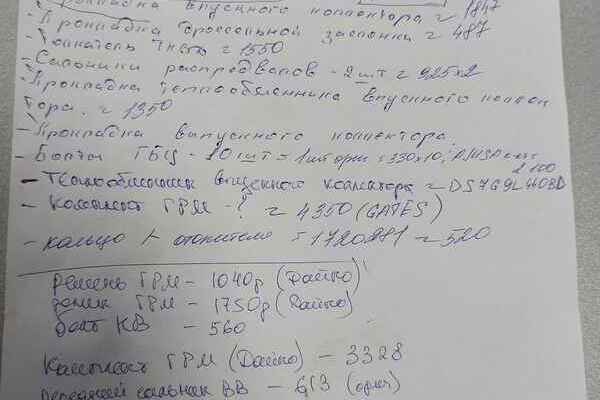 Прокладка впускного коллектора ≈ 1847
- Прокладка дроссельной заслонки ≈ 487
- Толкатель ≈ 1550
- Сальники распредвалов - 2 шт ≈ 925х2
- Прокладка теплообменника впускного коллек
тора. ≈ 1350
- Прокладка выпускного коллектора
- Болты ГБЦ - 10 шт = 1 шт ориг = 330х10;
- Теплообменник впускного коллектора ≈ DS7G9L440BD
- Комплект ГРМ - ? ≈ 4350 (GATES)
- кольцо отопителя = 1720281 ≈ 520
ремень ГРМ - 1040р (Дайко)
ролик ГРМ - 1750р (Дайко)
болт КВ - 560
Комплект ГРМ (Дайко) - 3328
передний сальник - 613 (ориг)